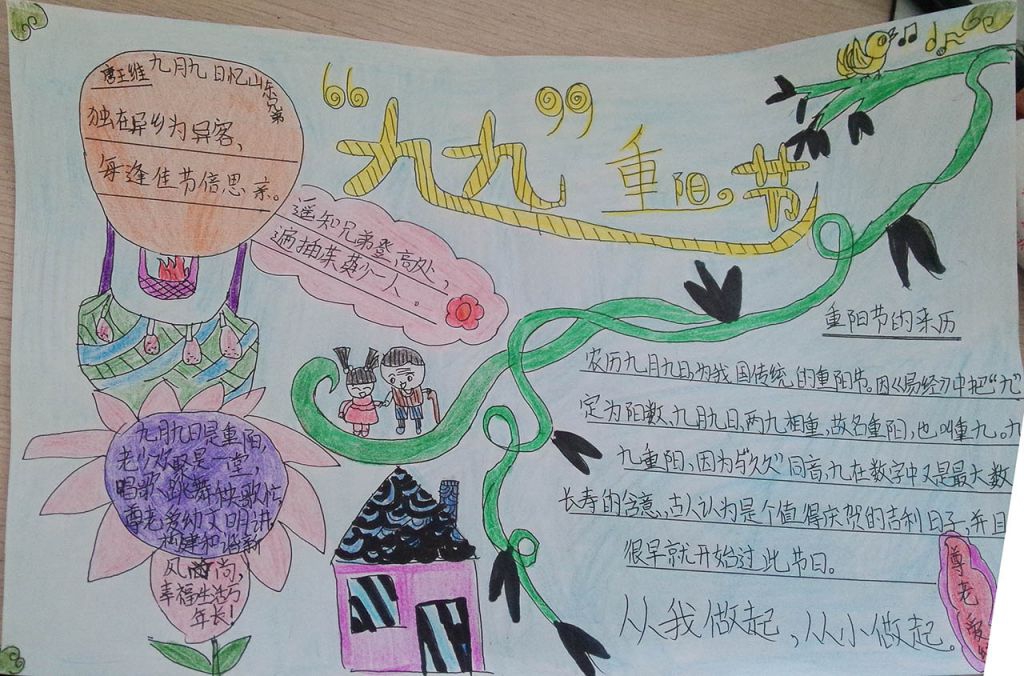 “九九”重阳。节
唐王维 九月九日忆山东兄弟
独在异乡为异客,
每逢佳节倍思亲。
遥知兄弟登高处,
遍插茱萸少一人。
重阳节的来历
农历九月九日,为我国传统的重阳节。因《易经》中把“九”
定为阳数,九月九日,两九相重,故名重阳,也叫重九。九
九重阳,因为与“久久”同音,九在数字中又是最大数
长寿的含意,古人认为是个值得庆贺的吉利日子,并且
很早就开始过此节日。
从我做起,从小做起。
尊老爱
九月九日是重阳,
老少欢聚是一堂,
唱歌、跳舞、秧歌忙
尊老爱幼文明讲
构建和谐新
风尚,
幸福生活万
年长!